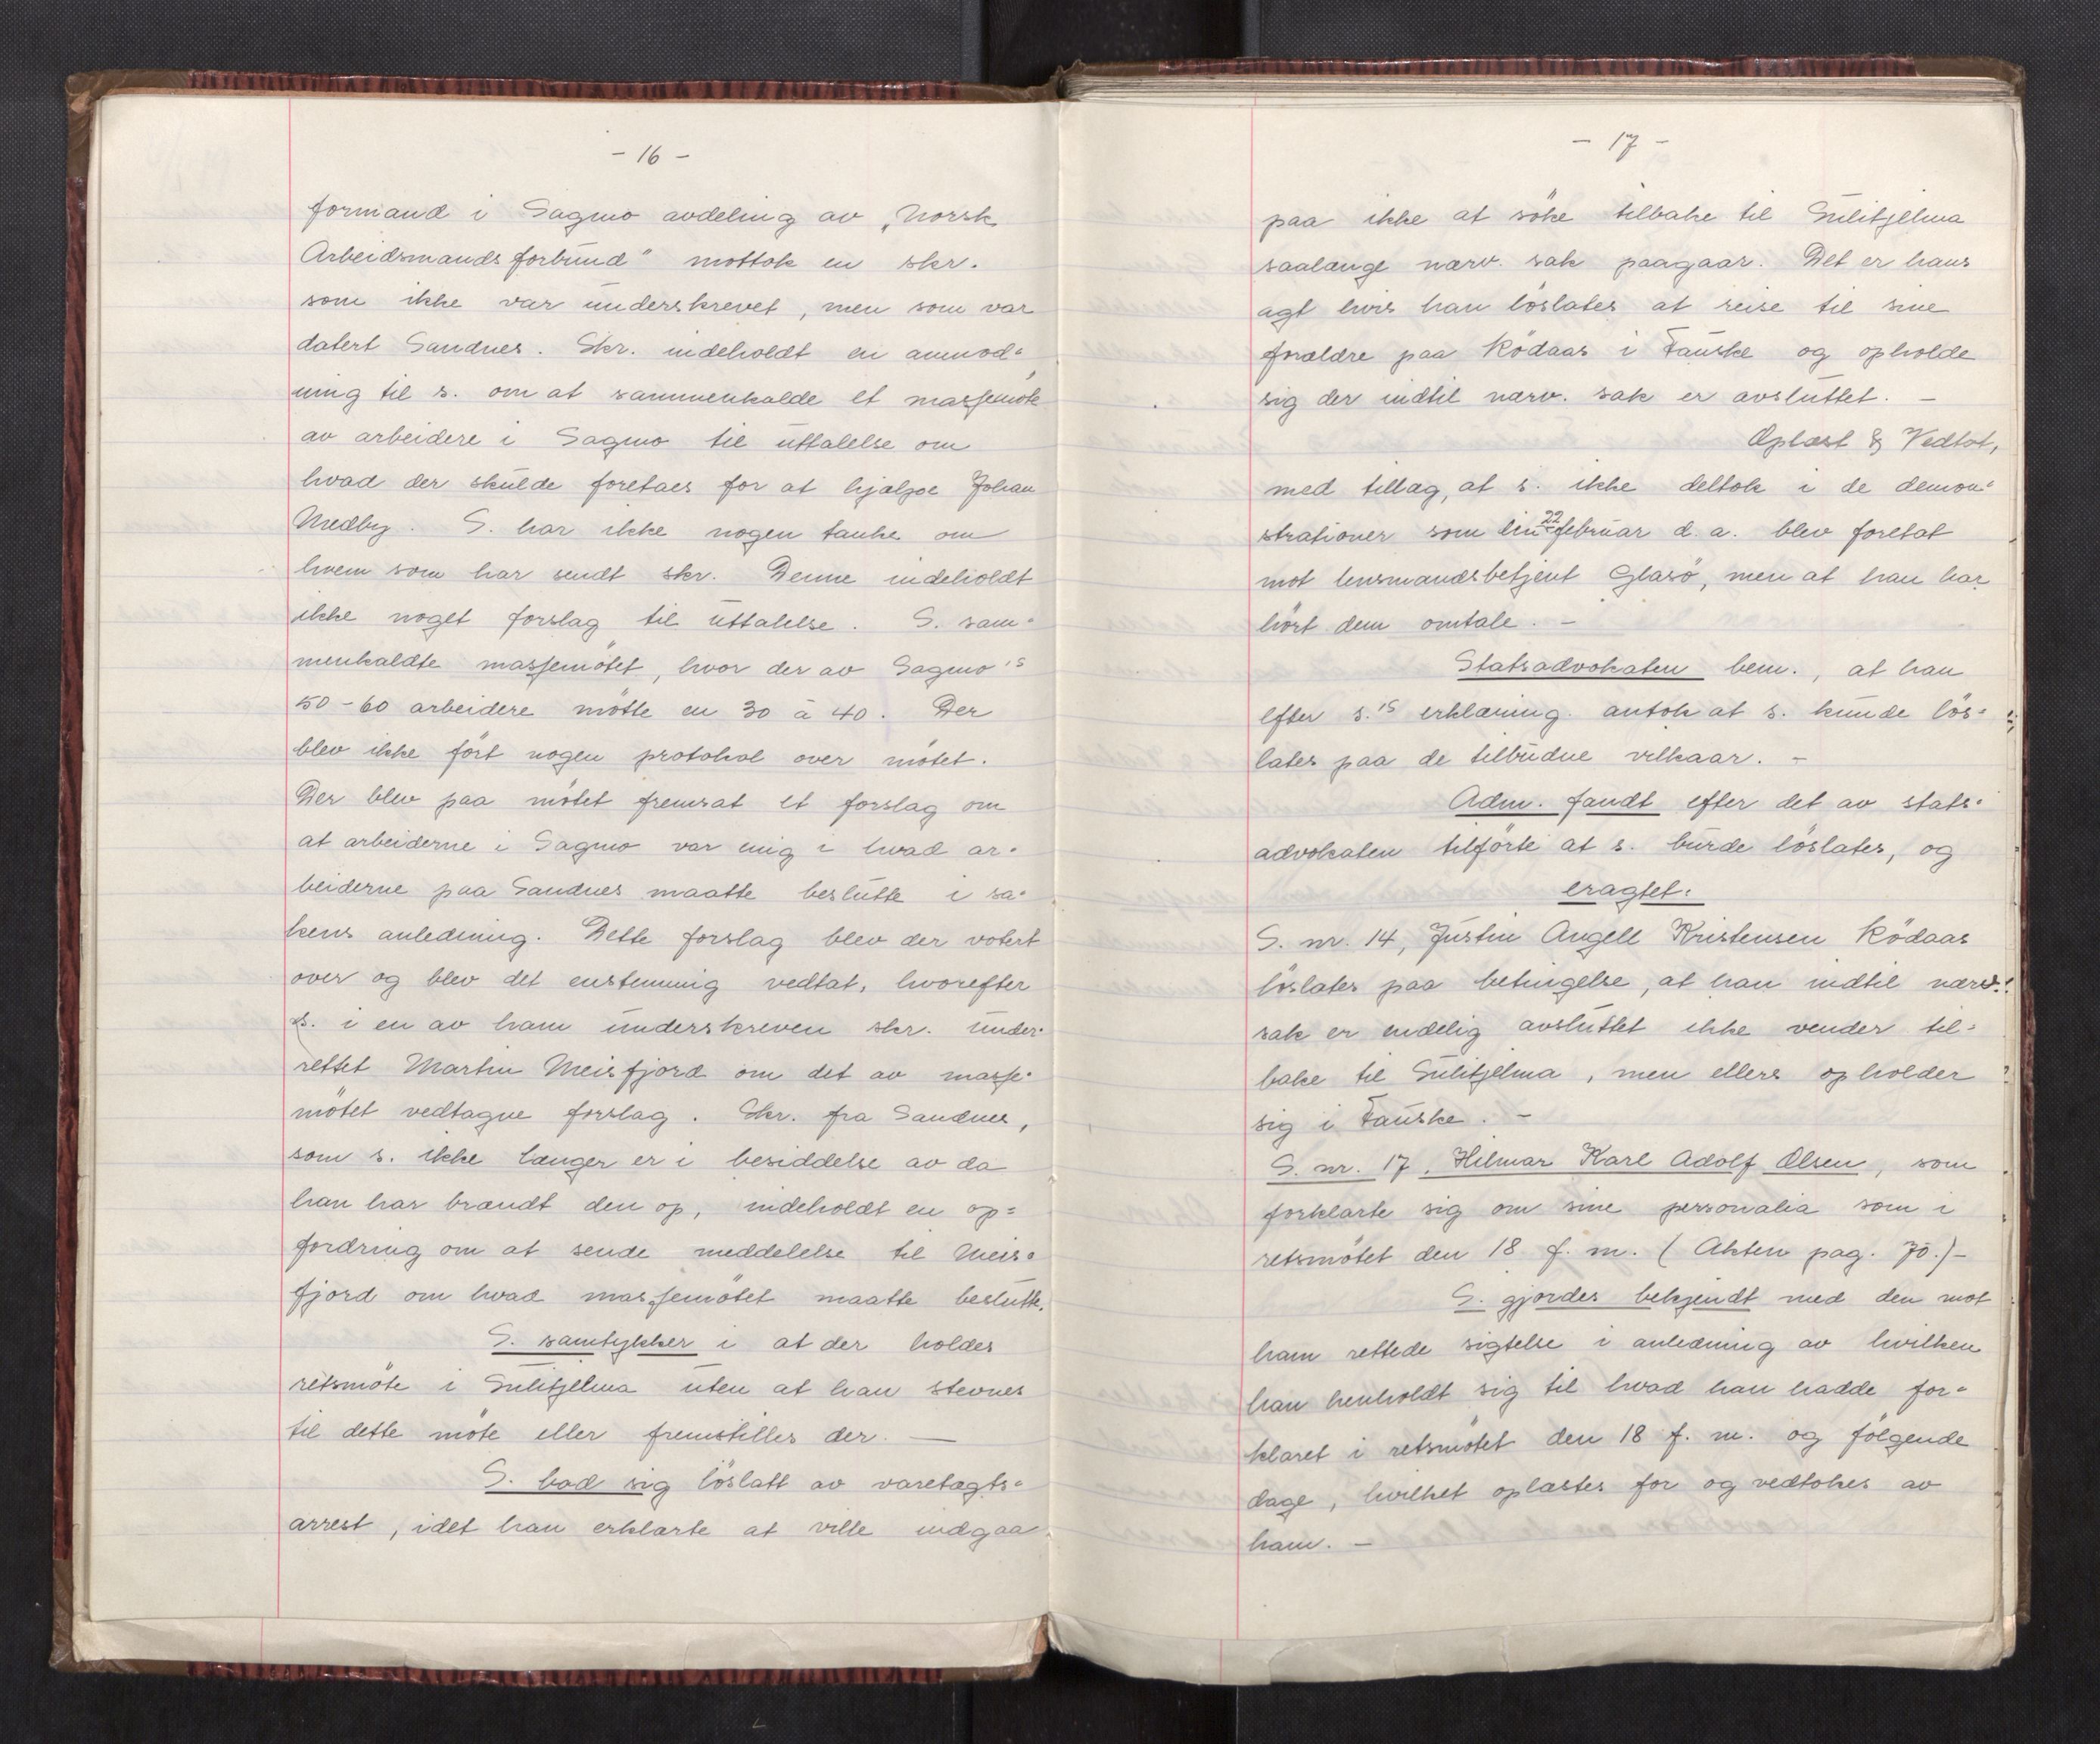 - 16 -
formand i Sagmo avdeling av „Norsk
Arbeidsmandsforbund" mottok en skr.
som ikke var underskrevet, men som var
datert Sandnes. Skr. indeholdt en anmod=
ning til s. om at sammenkalde et massemöte
av arbeidere i Sagmo til uttalelse om
hvad der skulde foretaes for at hjælpe Johan
Medby. S. har ikke nogen tanke om
hvem som har sendt skr. Denne indeholdt
ikke noget forslag til uttalelse. S. sam=
menkaldte massemötet, hvor der av Sagmo's
50-60 arbeidere mötte en 30 à 40. Der
blev ikke fört nogen protokol over mötet.
Der blev paa mötet fremsat et forslag om
at arbeiderne i Sagmo var enig i hvad ar=
beiderne paa Sandnes maatte beslutte i sa=
kens anledning. Dette forslag blev der votert
over og blev det enstemmig vedtat, hvorefter
s. i en av ham underskreven skr. under=
rettet Martin Meisfjord om det av masse=
mötet vedtagne forslag. Skr. fra Sandnes,
som s. ikke længer er i besiddelse av da
han har brændt den op, indeholdt en op=
fordring om at sende meddelelse til Meis=
fjord om hvad massemötet maatte beslutte.
S. samtykker i at der holdes
retsmöte i Sulitjelma uten at han stevnes
til dette möte eller fremstilles der. —
S. bad sig löslatt av varetægts=
arrest, idet han erklærte at ville indgaa
- 17 -
paa ikke at söke tilbake til Sulitjelma
saalænge nærv. sak paagaar. Det er hans
agt hvis han löslates at reise til sine
forældre paa Rödaas i Fauske og opholde
sig der indtil nærv. sak er avsluttet. -
Oplæst & Vedtat,
med tillæg, at s. ikke deltok i de demon=
strationer som den 22 februar d. a. blev foretat
mot lensmandsbetjent Glasö, men at han har
hört dem omtale. -
Statsadvokaten bem., at han
efter s.'s erklæring antok at s. kunde lös=
lates paa de tilbudne vilkaar. -
Adm. fandt efter det av stats=
advokaten tilförte at s. burde löslates, og
eragtet:
S. nr. 14, Justin Angell Kristensen Rödaas
löslates paa betingelse, at han indtil nærv.
sak er endelig avsluttet ikke vender til=
bake til Sulitjelma, men ellers opholder
sig i Fauske. -
S. nr. 17, Hilmar Karl Adolf Olsen, som
forklarte sig om sine personalia som i
retsmötet den 18 f. m. (Akten pag. 70.)-
S. gjordes bekjendt med den mot
ham rettede sigtelse i anledning av hvilken
han henholdt sig til hvad han hadde for=
klaret i retsmötet den 18 f. m. og fölgende
dage, hvilket oplæstes for og vedtokes av
ham. -